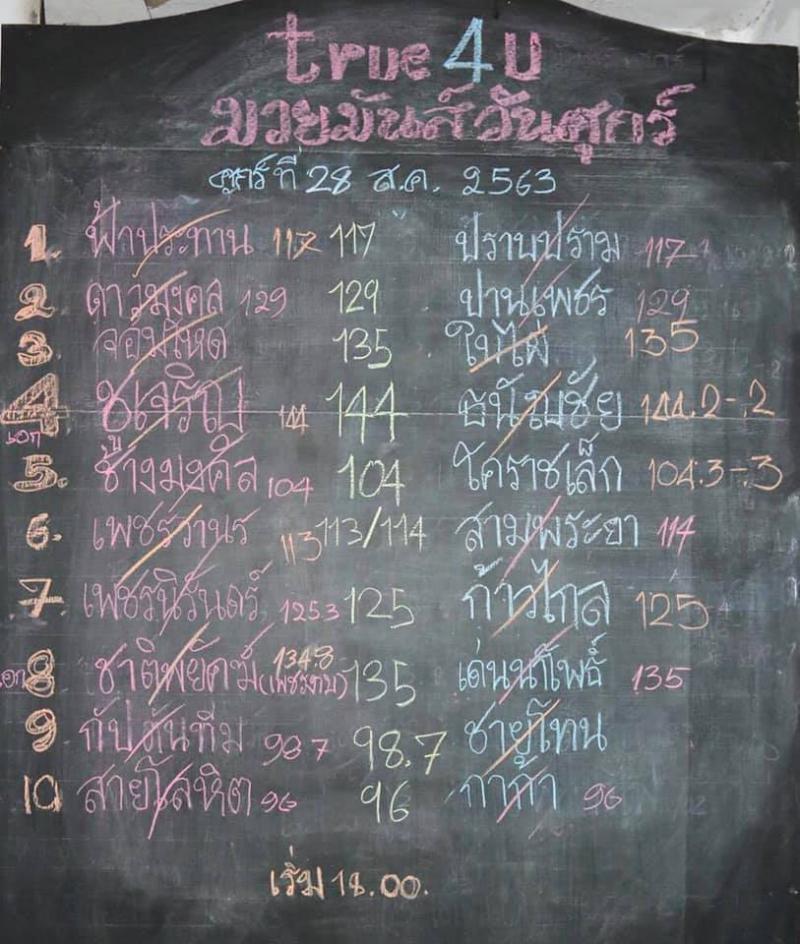 true4U
มวยมันส์วันศุกร์
ศุกร์ที่ 28 ส.ค. 2563
1. ฟ้าประทาน 117 117 ปราบปราม 117
2. ดาวมงคล 129 129 ปานเพชร 129
3. จอมโหด 135 ใบไผ่ 135
4 ชูเจริญ 144 144 ธนัญชัย 144.2-.2
เอก
5. ช้างมงคล 104 104 โคราชเล็ก 104.3-.3
6. เพชรวานร 113 113/114 สามพระยา 114
7. เพชรนิรันดร์ 125.3 125 ก้าวไกล 125
เอก 8 ชาติพยัคฆ์ 134.8 (เพชรทบ) 135 เด่นนาโพธิ์ 135
9 กัปตันทีม 98.7 98.7 ชายโทน
10 สายโลหิต 96 96 กาก้า 96
เริ่ม 18.00.